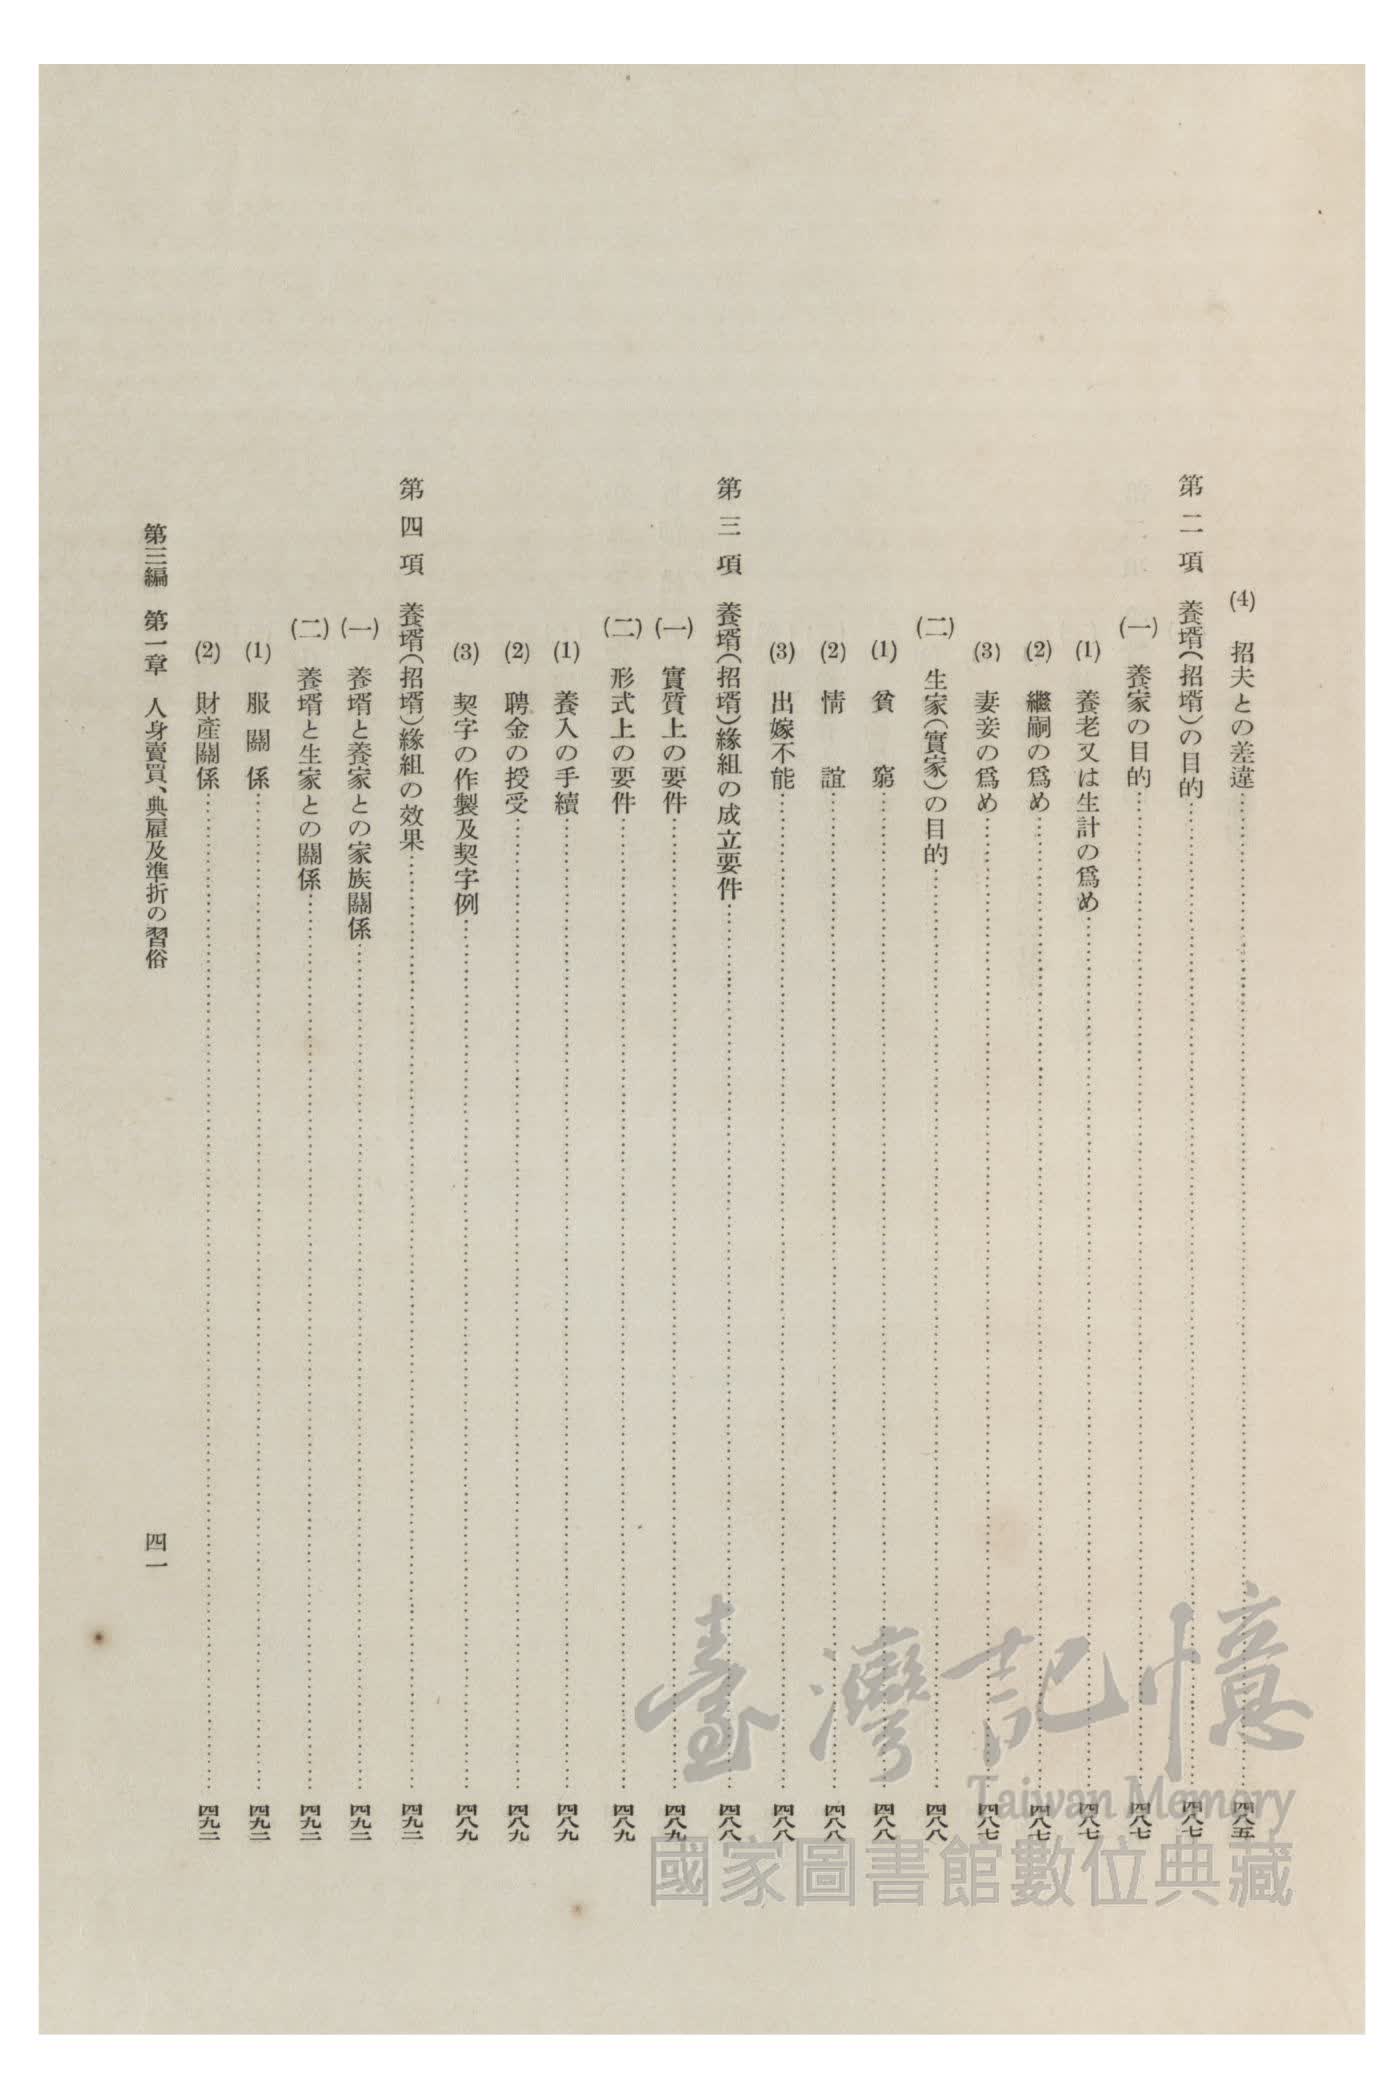 (4) 招夫との差違……四八五
第二項 養壻(招壻)の目的……四八七
(一) 養家の目的……四八七
(1) 養老又は生計の爲め……四八七
(2) 繼嗣の爲め……四八七
(3) 妻妾の爲め……四八七
(二) 生家(實家)の目的……四八八
(1) 貧窮……四八八
(2) 情誼……四八八
(3) 出嫁不能……四八八
第三項 養壻(招壻)緣組の成立要件……四八八
(一) 實質上の要件……四八九
(二) 形式上の要件……四八九
(1) 養入の手續……四八九
(2) 聘金の授受……四八九
(3) 契字の作製及契字例……四八九
第四項 養壻(招壻)緣組の效果……四九二
(一) 養壻と養家との家族關係……四九二
(二) 養壻と生家との關係……四九二
(1) 服關係……四九二
(2) 財產關係……四九二
第三編 第一章 人身賣買、典雇及準折の習俗 四一
臺灣記憶
Taiwan Memory
國家圖書館數位典藏